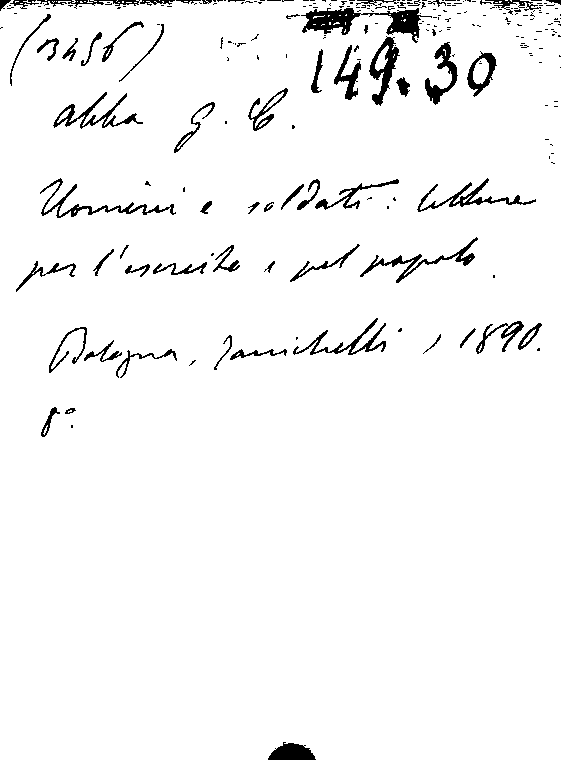 (13456)
149.30
Abba G. C.
Uomini e soldati: letture
per l'esercito e pel popolo.
Bologna, Zanichelli, 1890.
8°.